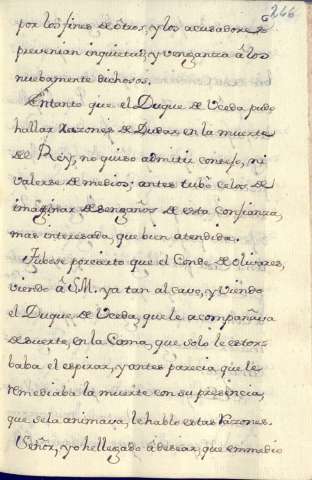 266
por los fines de ôtros, y los acusadores
prevenian inquietud, y venganza â los
nuebamente dichosos.
Entanto que el Duque de Uceda pudo
hallar razones de Dudar, en la muerte
del Rey, no quiso admitir consejo, ni
valerse de medios; antes tubô celos de
imaginar desengaños de esta confianza,
mas interesada, que bien atendida.
Tubose por cierto que el Conde de Olivares,
viendo â S.M. ya tan al cavo, y viendo
el Duque de Uceda, que le acompañava
de suerte, en la Cama, que solo le estor=
baba el espirar, y antes parecia que le
remediaba la muerte con su presencia,
que sela animava, le hablo estas razones.
Señor, yo he llegado â desear, que en medio